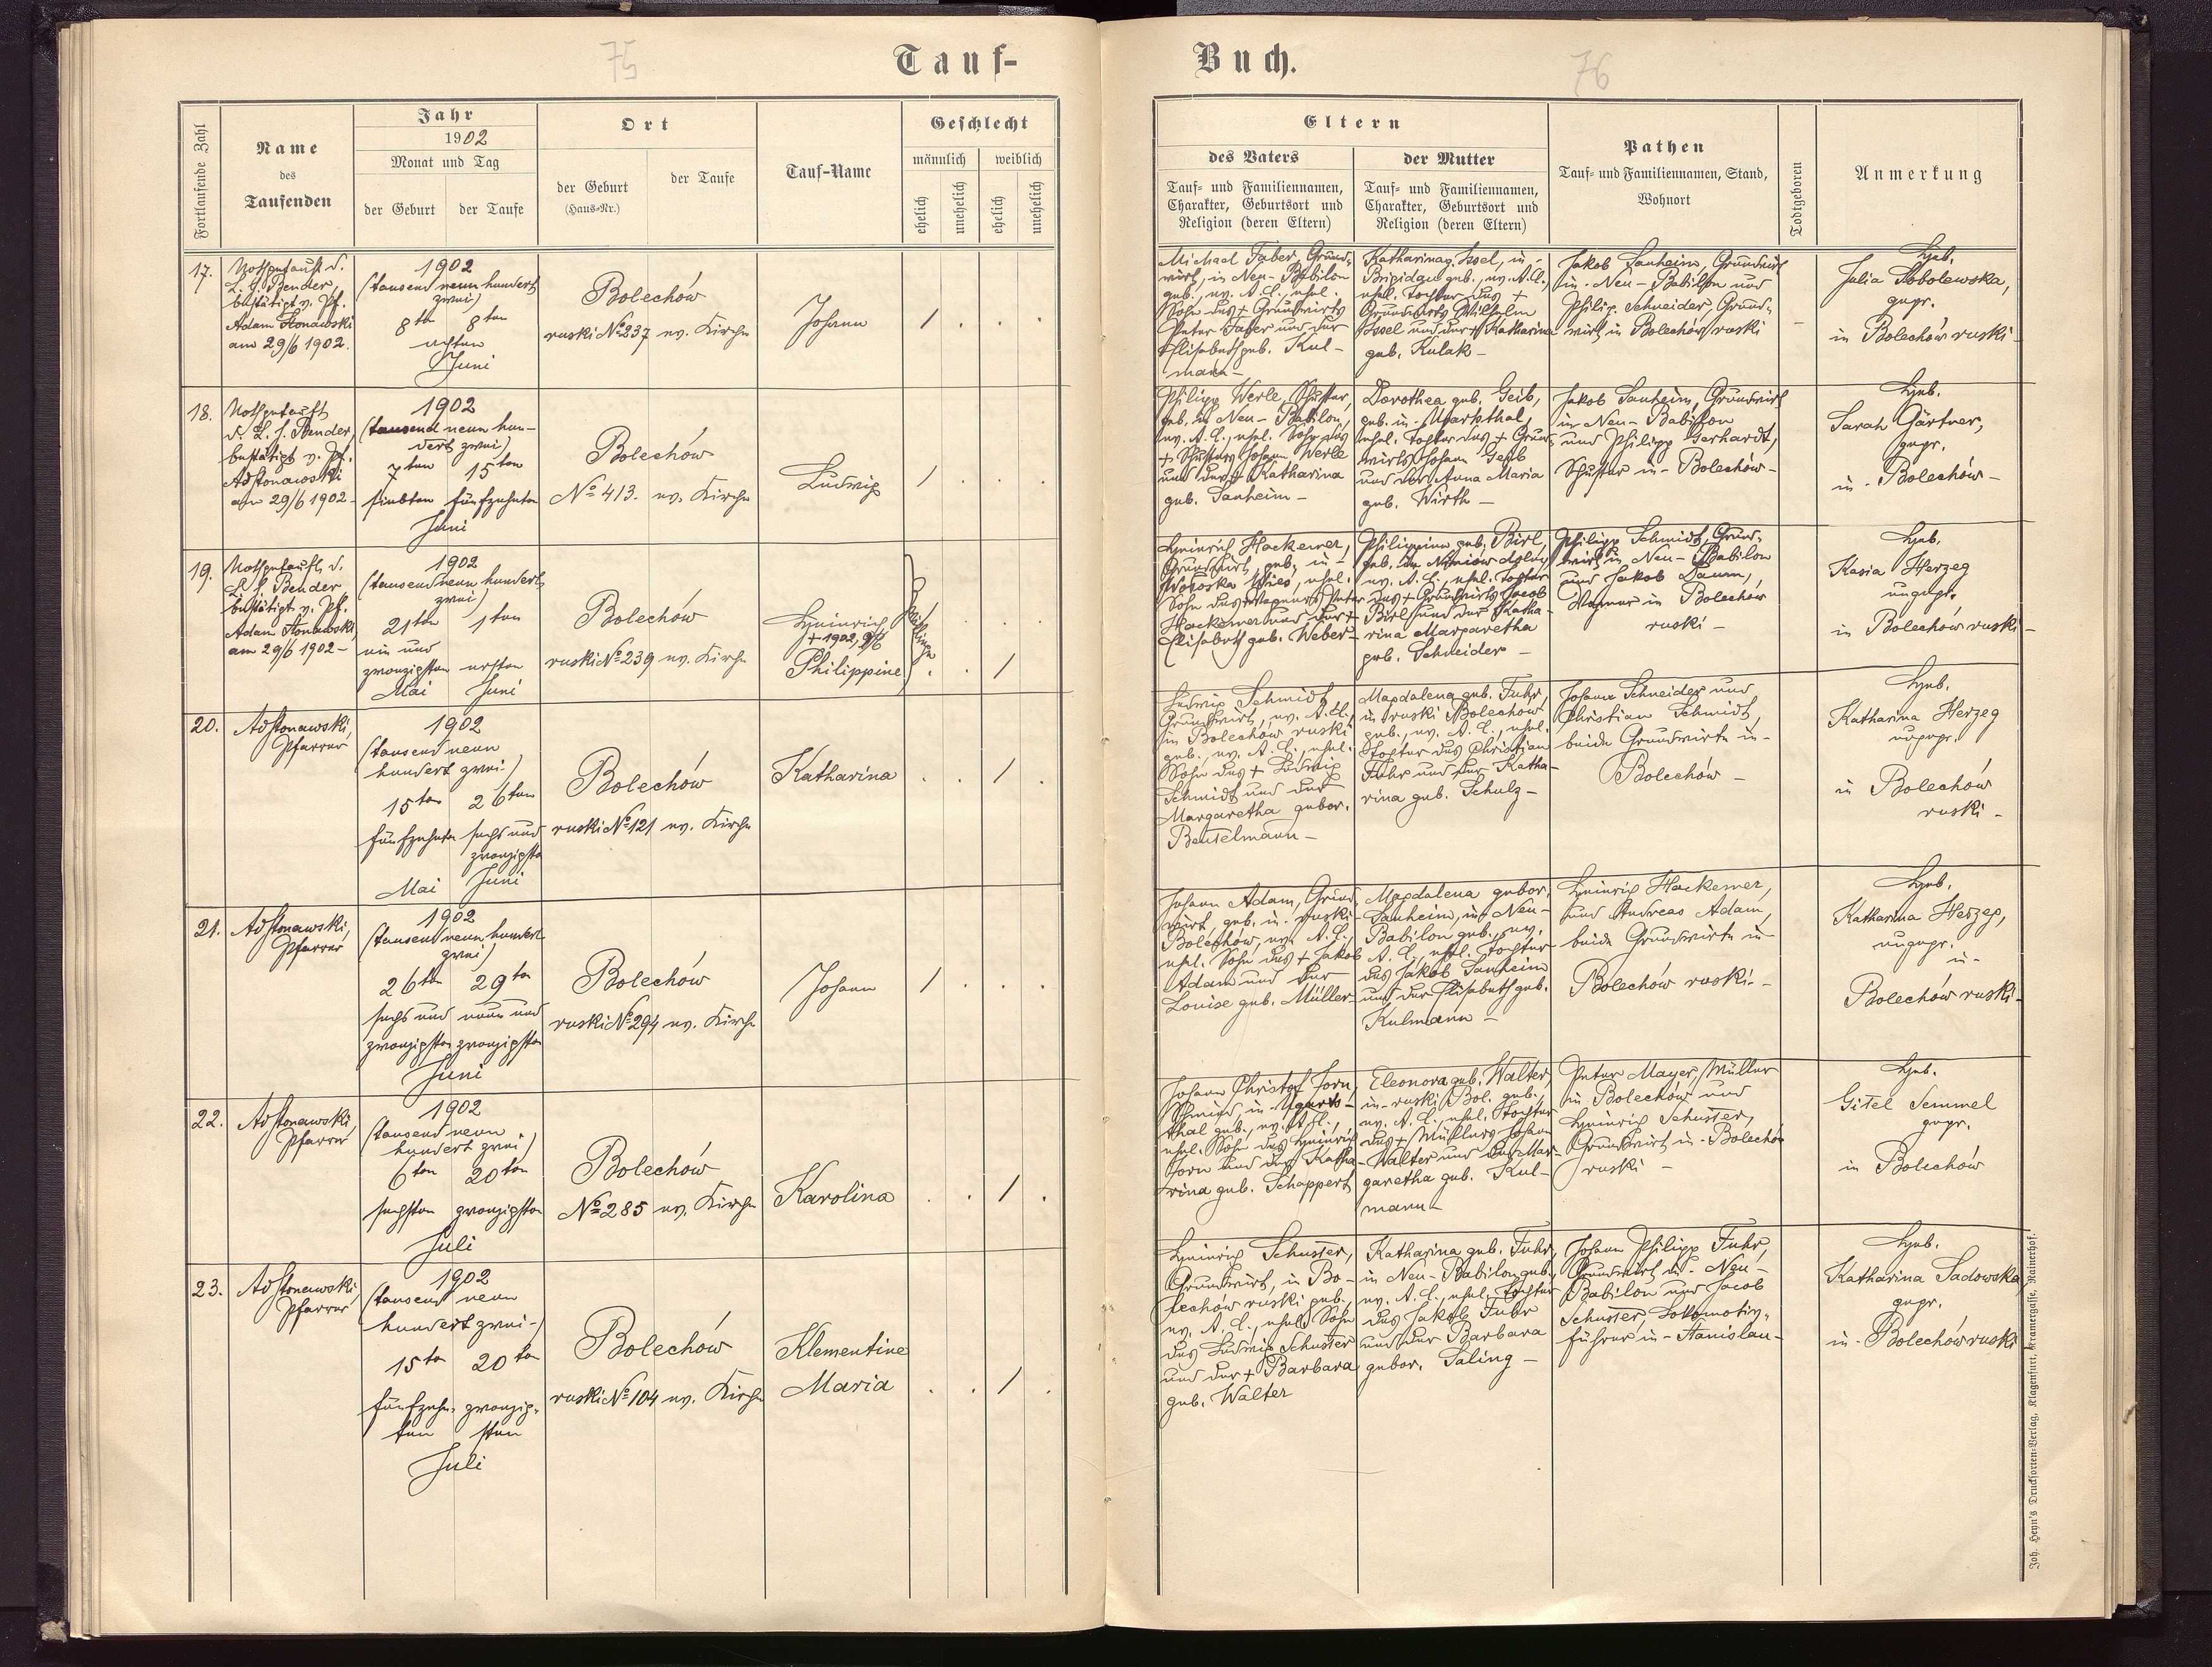 75
Tauf-
Buch.
76
Fortlaufende Zahl
Name
des
Taufenden
Jahr
1902
Monat und Tag
der Geburt
der Taufe
Ort
der Geburt
(Haus-Nr.)
der Taufe
Tauf-Name
Geschlecht
männlich
weiblich
ehelich
unehelich
ehelich
unehelich
Eltern
des Vaters
Tauf- und Familiennamen,
Charakter, Geburtsort und
Religion (deren Eltern)
der Mutter
Tauf- und Familiennamen,
Charakter, Geburtsort und
Religion (deren Eltern)
Pathen
Tauf- und Familiennamen, Stand,
Wohnort
Todtgeboren
Anmerkung
17.
Nothgetauft d.
L. J. Bender,
bestätigt v. Pf.
Adam
am 29/6 1902.
1902
(tausend neun hundert
zwei)
8ten 8ten
achten
Juni
Bolechów
ruski No 237 ev. Kirche
Johann
/ . . .
Michael Faber, Grund-
wirt, in Neu-Babilon
geb., ev. A.C., ehel.
Sohn des + Grundwirts
Peter Faber und der
Elisabeth geb. Kul-
mann -
Katharina g. Issel, in
Brigidau geb., ev. A.C.,
ehel. Tochter des +
Grundwirts Wilhelm
Issel und der + Katharina
geb. Kulak -
Jakob Sauheim, Grundwirt
in Neu-Babilon und
Philip. Schneider, Grund-
wirt in Bolechów ruski
-
Heb.
Julia Sobolewska,
gepr.
in Bolechów ruski -
18.
Nothgetauft
d. L. J. Bender,
bestätigt v. Pf.
am 29/6 1902 -
1902
(tausend neun hun-
dert zwei)
7ten 15ten
siebten fünfzehnten
Juni
Bolechów
No 413. ev. Kirche
Ludwig
/ . . .
Philipp Werle, Schuster,
geb. in Neu-Babilon,
ev. A.C., ehel. Sohn des
+ Schusters Johann Werle
und der + Katharina
geb. Sauheim -
Dorothea geb. Geib,
geb. in Ugartsthal,
ehel. Tochter des + Grund-
wirts Johann Geib
und der Anna Maria
geb. Wirth -
Jakob Sauheim, Grundwirt
in Neu-Babilon
und Philipp Gerhardt,
Schuster in Bolechów -
Heb.
Sarah Gärtner,
gepr.
in Bolechów -
19.
Nothgetauft d.
L. J. Bender
bestätigt v. Pf.
Adam
am 29/6 1902 -
1902
(tausend neun hundert
zwei)
21ten 1ten
ein und
zwanzigsten ersten
Mai Juni
Bolechów
ruski No 239 ev. Kirche
Heinrich
+ 1902, 9/6
Philippine
Zwillinge
. . .
. . / .
Heinrich Hackemer,
Grundwirt, geb. in
Wołoska Wies, ehel.
Sohn des Wagners Peter
Hackemer und der +
Elisabeth geb. Weber -
Philippine geb. Birl,
ev. A.C., ehel. Tochter
des + Grundwirts Jacob
Birl und der Katha-
rina Margaretha
geb. Schneider -
Philipp Schmidt, Grund-
wirt in Neu-Babilon
und Jakob Daum,
Wagner in Bolechów
ruski -
Heb.
Kasia Herzeg
ungepr.
in Bolechów ruski -
20.
Pfarrer
1902
(tausend neun
hundert zwei)
15ten 26ten
fünfzehnten sechs und
zwanzigsten
Mai Juni
Bolechów
ruski No 121 ev. Kirche
Katharina
. . / .
Ludwig Schmidt,
Grundwirt, ev. A.C.,
in Bolechów ruski
geb., ev. A.C., ehel.
Sohn des + Ludwig
Schmidt und der
Margaretha gebor.
Beutelmann -
Magdalena geb. Fuhr,
in ruski Bolechów
geb., ev. A.C., ehel.
Tochter des Christian
Fuhr und der Katha-
rina geb. Schulz -
Johann Schneider und
Christian Schmidt,
beide Grundwirte in
Bolechów -
Heb.
Katharina Herzeg
ungepr.
in Bolechów
ruski -
21.
Pfarrer
1902
(tausend neun hundert
zwei)
26ten 29ten
sechs und neun und
zwanzigsten zwanzigsten
Juni
Bolechów
ruski No 294 ev. Kirche
Johann
/ . . .
Johann Adam, Grund-
wirt, geb. in ruski
Bolechów, ev. A.C.,
ehel. Sohn des + Jakob
Adam und der
Louise geb. Müller -
Magdalena gebor.
Sauheim, in Neu-
Babilon geb., ev.
A.C., ehel. Tochter
des Jakob Sauheim
und der Elisabeth geb.
Kulmann -
Heinrich Hackemer,
und Andreas Adam,
beide Grundwirte in
Bolechów ruski. -
Heb.
Katharina Herzeg,
ungepr.
in
Bolechów ruski -
22.
Pfarrer
1902
(tausend neun
hundert zwei)
6ten 20ten
sechsten zwanzigsten
Juli
Bolechów
No 285 ev. Kirche
Karolina
. . / .
Johann Christof Jorn,
Schmied in Ugarts-
thal geb., ev. A.C.,
ehel. Sohn des Heinrich
Jorn und der Katha-
rina geb. Schappert
Eleonora geb. Walter,
in ruski Bol. geb.,
ev. A.C., ehel. Tochter
des + Müllers Johann
Walter und der Mar-
garetha geb. Kul-
mann -
Peter Mayer, Müller
in Bolechów und
Heinrich Schuster,
Grundwirt in Bolechów
ruski -
Heb.
Gitel Semmel
gepr.
in Bolechów
23.
Pfarrer
1902
(tausend neun
hundert zwei-)
15ten 20ten
fünfzehn- zwanzig-
ten sten
Juli
Bolechów
ruski No 104 ev. Kirche
Klementine
Maria
. . / .
Heinrich Schuster,
Grundwirt, in Bo-
lechów ruski geb.,
ev. A.C., ehel. Sohn
des Ludwig Schuster
und der + Barbara
geb. Walter
Katharina geb. Fuhr,
in Neu-Babilon geb.,
ev. A.C., ehel. Tochter
des Jakob Fuhr
und der Barbara
gebor. Saling -
Johann Philipp Fuhr,
Grundwirt in Neu-
Babilon und Jacob
Schuster, Lokomotiv-
führer in Stanislau -
Heb.
Katharina Sadowska,
gepr.
in Bolechów ruski
Joh. Heyn's Drucksorten-Verlag, Klagenfurt, Kramergasse, Rainerhof.